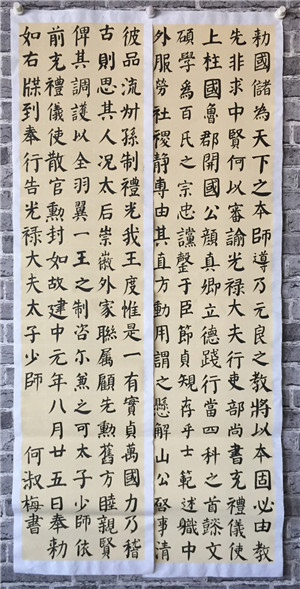 勅國儲為天下之本師導乃元良之教將以本固必由教
先非求中賢何以審諭光祿大夫行吏部尚書充禮儀使
上柱國魯郡開國公顏真卿立德踐行當四科之首懿文
碩學為百氏之宗忠讜罄于臣節貞規存乎士範述職中
外服勞社稷靜專由其直方動用謂之懸解山公啓事清
彼品流叔孫制禮光我王度惟是一有實貞萬國力乃稽
古則思其人況太后崇徽外家聯属顧先勳舊方睦親賢
俾其調護以全羽翼一王之制咨尔兼之可太子少師依
前充禮儀使散官勳封如故建中元年八月廿五日奉勅
如右牒到奉行告光祿大夫太子少師 何叔梅書